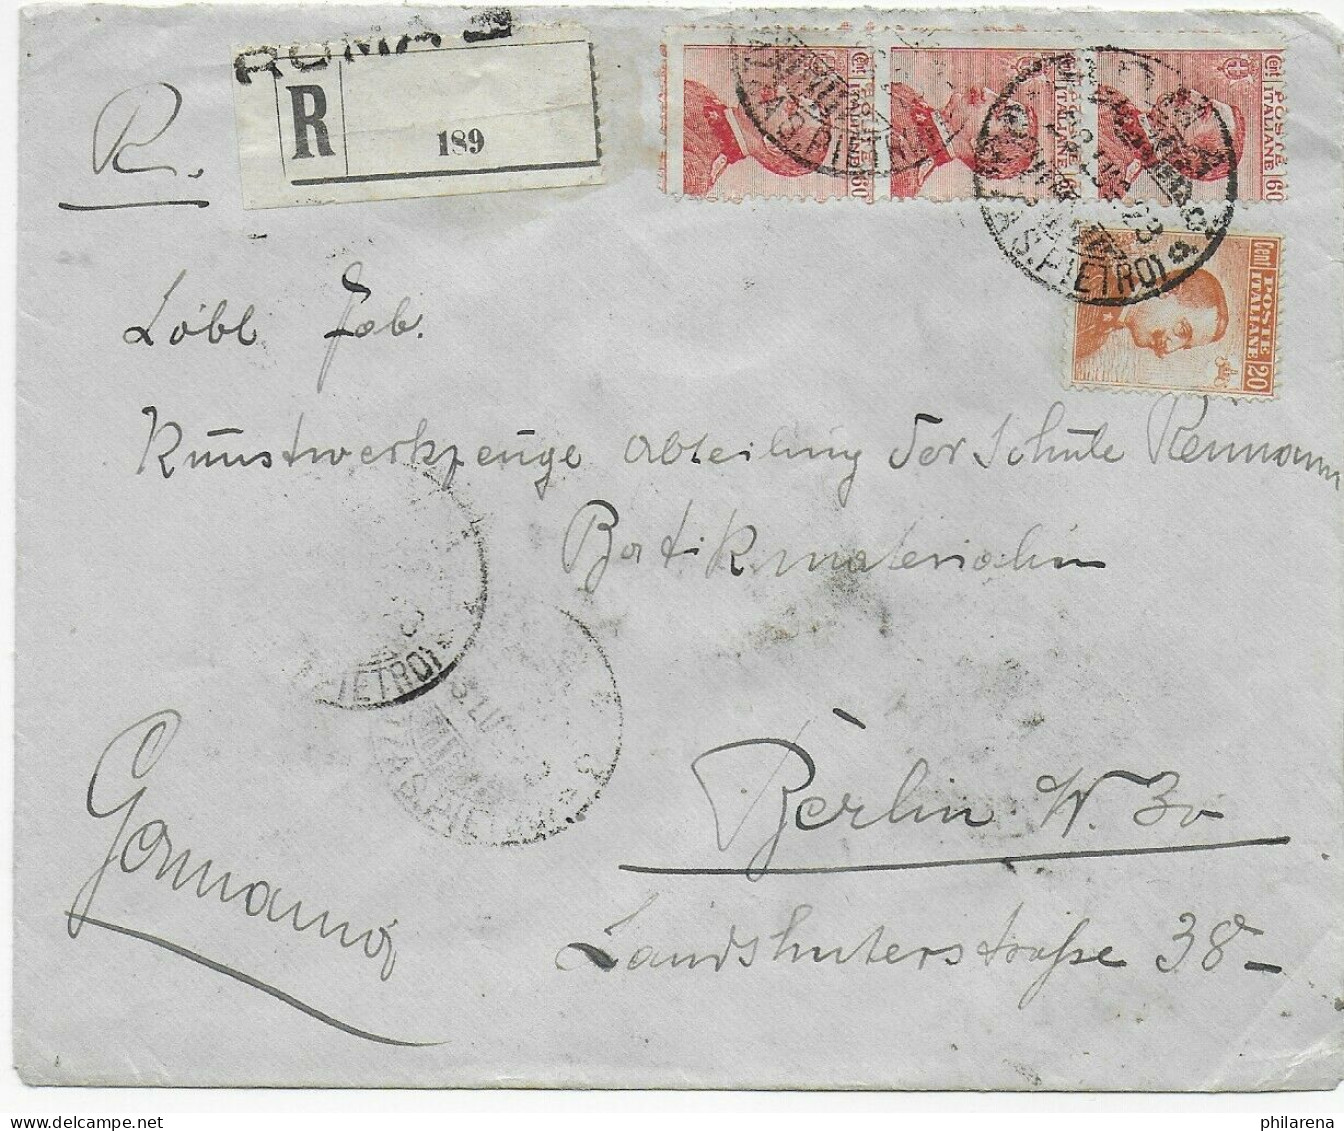 R.
ROMA
R
189
Cent POSTE ITALIANE 60
Cent POSTE ITALIANE 60
Cent POSTE ITALIANE 60
(S. PIETRO)
Cent POSTE ITALIANE 20
Löbl. Fab.
Kunstwerkzeuge Abteilung der Schule Remmann
Batikmaterialien
(S. PIETRO)
Berlin W. 30
Germania
Landshuterstraße 38
philarena.com